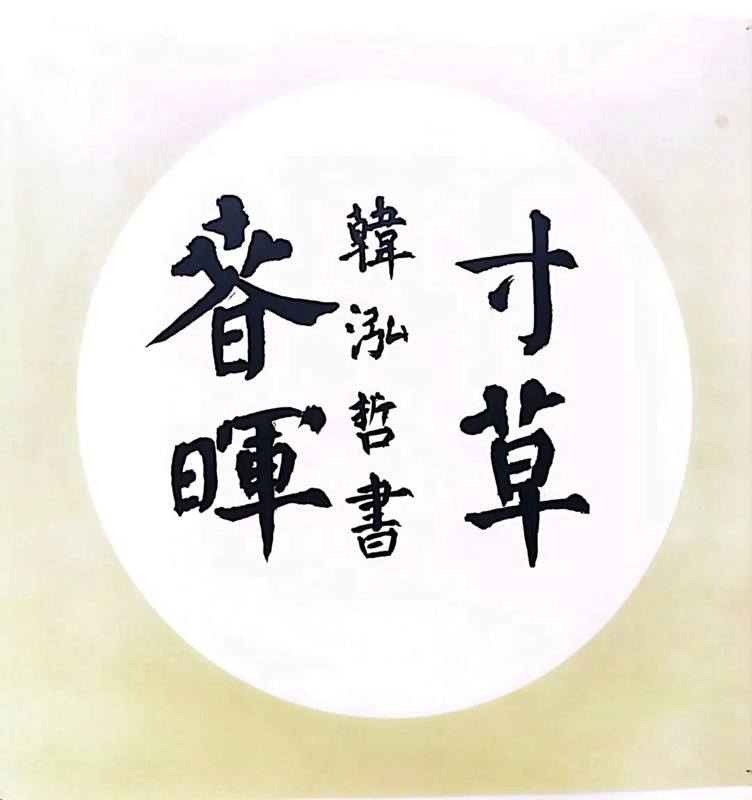 寸草
春暉
韓泓哲書